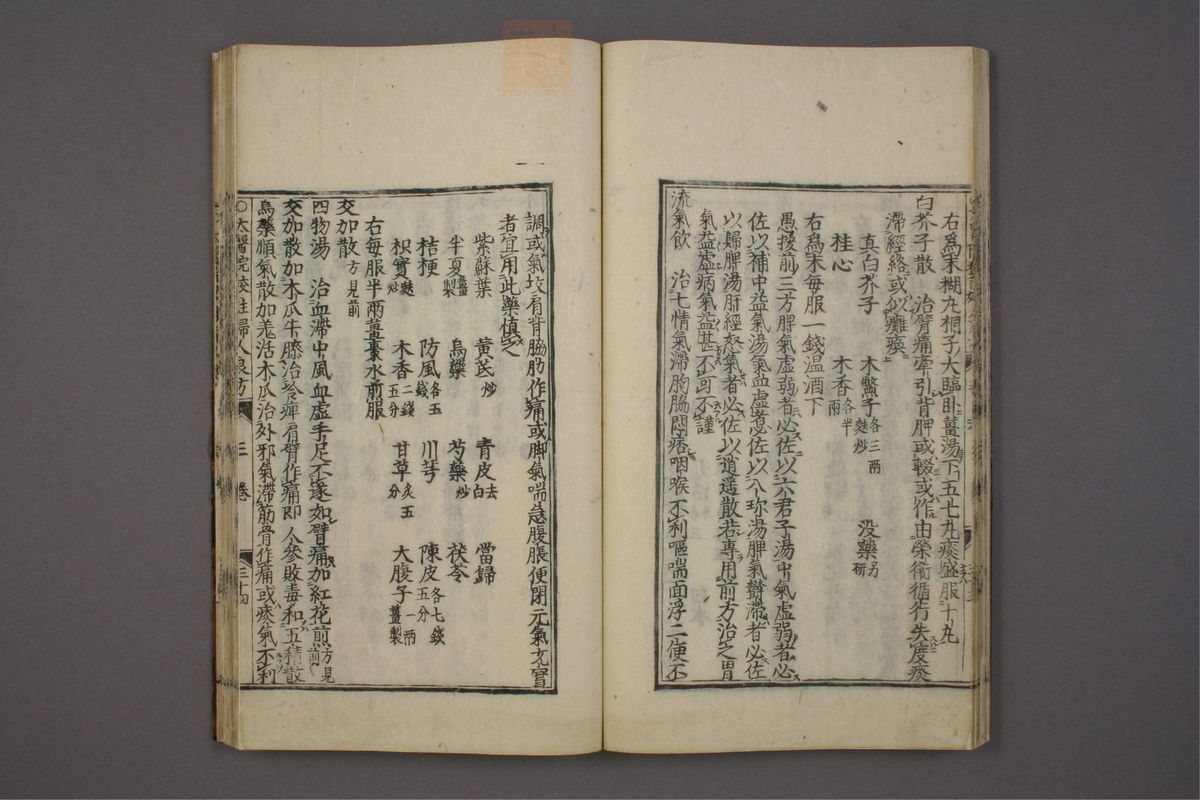 右爲末糊丸桐子大臨卧薑湯下五七丸痰盛服十丸
白芥子散 治臂痛牽引背胛或輟或作由榮衞循行失度痰
滯經絡或似癱瘓
真白芥子 木鱉子各三兩麩炒 没藥另研
桂心 木香各半兩
右爲末每服一錢温酒下
愚按前三方脾氣虚弱者必佐以六君子湯中氣虚弱者必
佐以補中益氣湯氣血虚者必佐以八珎湯脾氣欝滯者必佐
以歸脾湯肝經怒氣者必佐以逍遥散若專用前方治之胃
氣益虚病氣益甚不可不謹
流氣飲 治七情氣滯胸脇悶痞咽喉不利嘔喘面浮二便不
調或氣攻肩背脇肋作痛或脚氣喘急腹脹便閉元氣充實
者宜用此藥慎之
紫蘇葉 黄芪炒 青皮去白 當歸
半夏薑製 烏藥 芍藥炒 茯苓
桔梗 防風各五錢 川芎 陳皮各七錢五分
枳實麩炒 木香二錢五分 甘草炙五分 大腹子一兩薑製
右每服半兩薑棗水煎服
交加散方見前
四物湯 治血滯中風血虚手足不遂如臂痛加紅花煎方見前
交加散加木瓜牛膝治冷痺肩臂作痛即人參敗毒和五積散
烏藥順氣散加羗活木瓜治外邪氣滯筋骨作痛或痰氣不利
○太醫院校註婦人良方 三卷 三十四